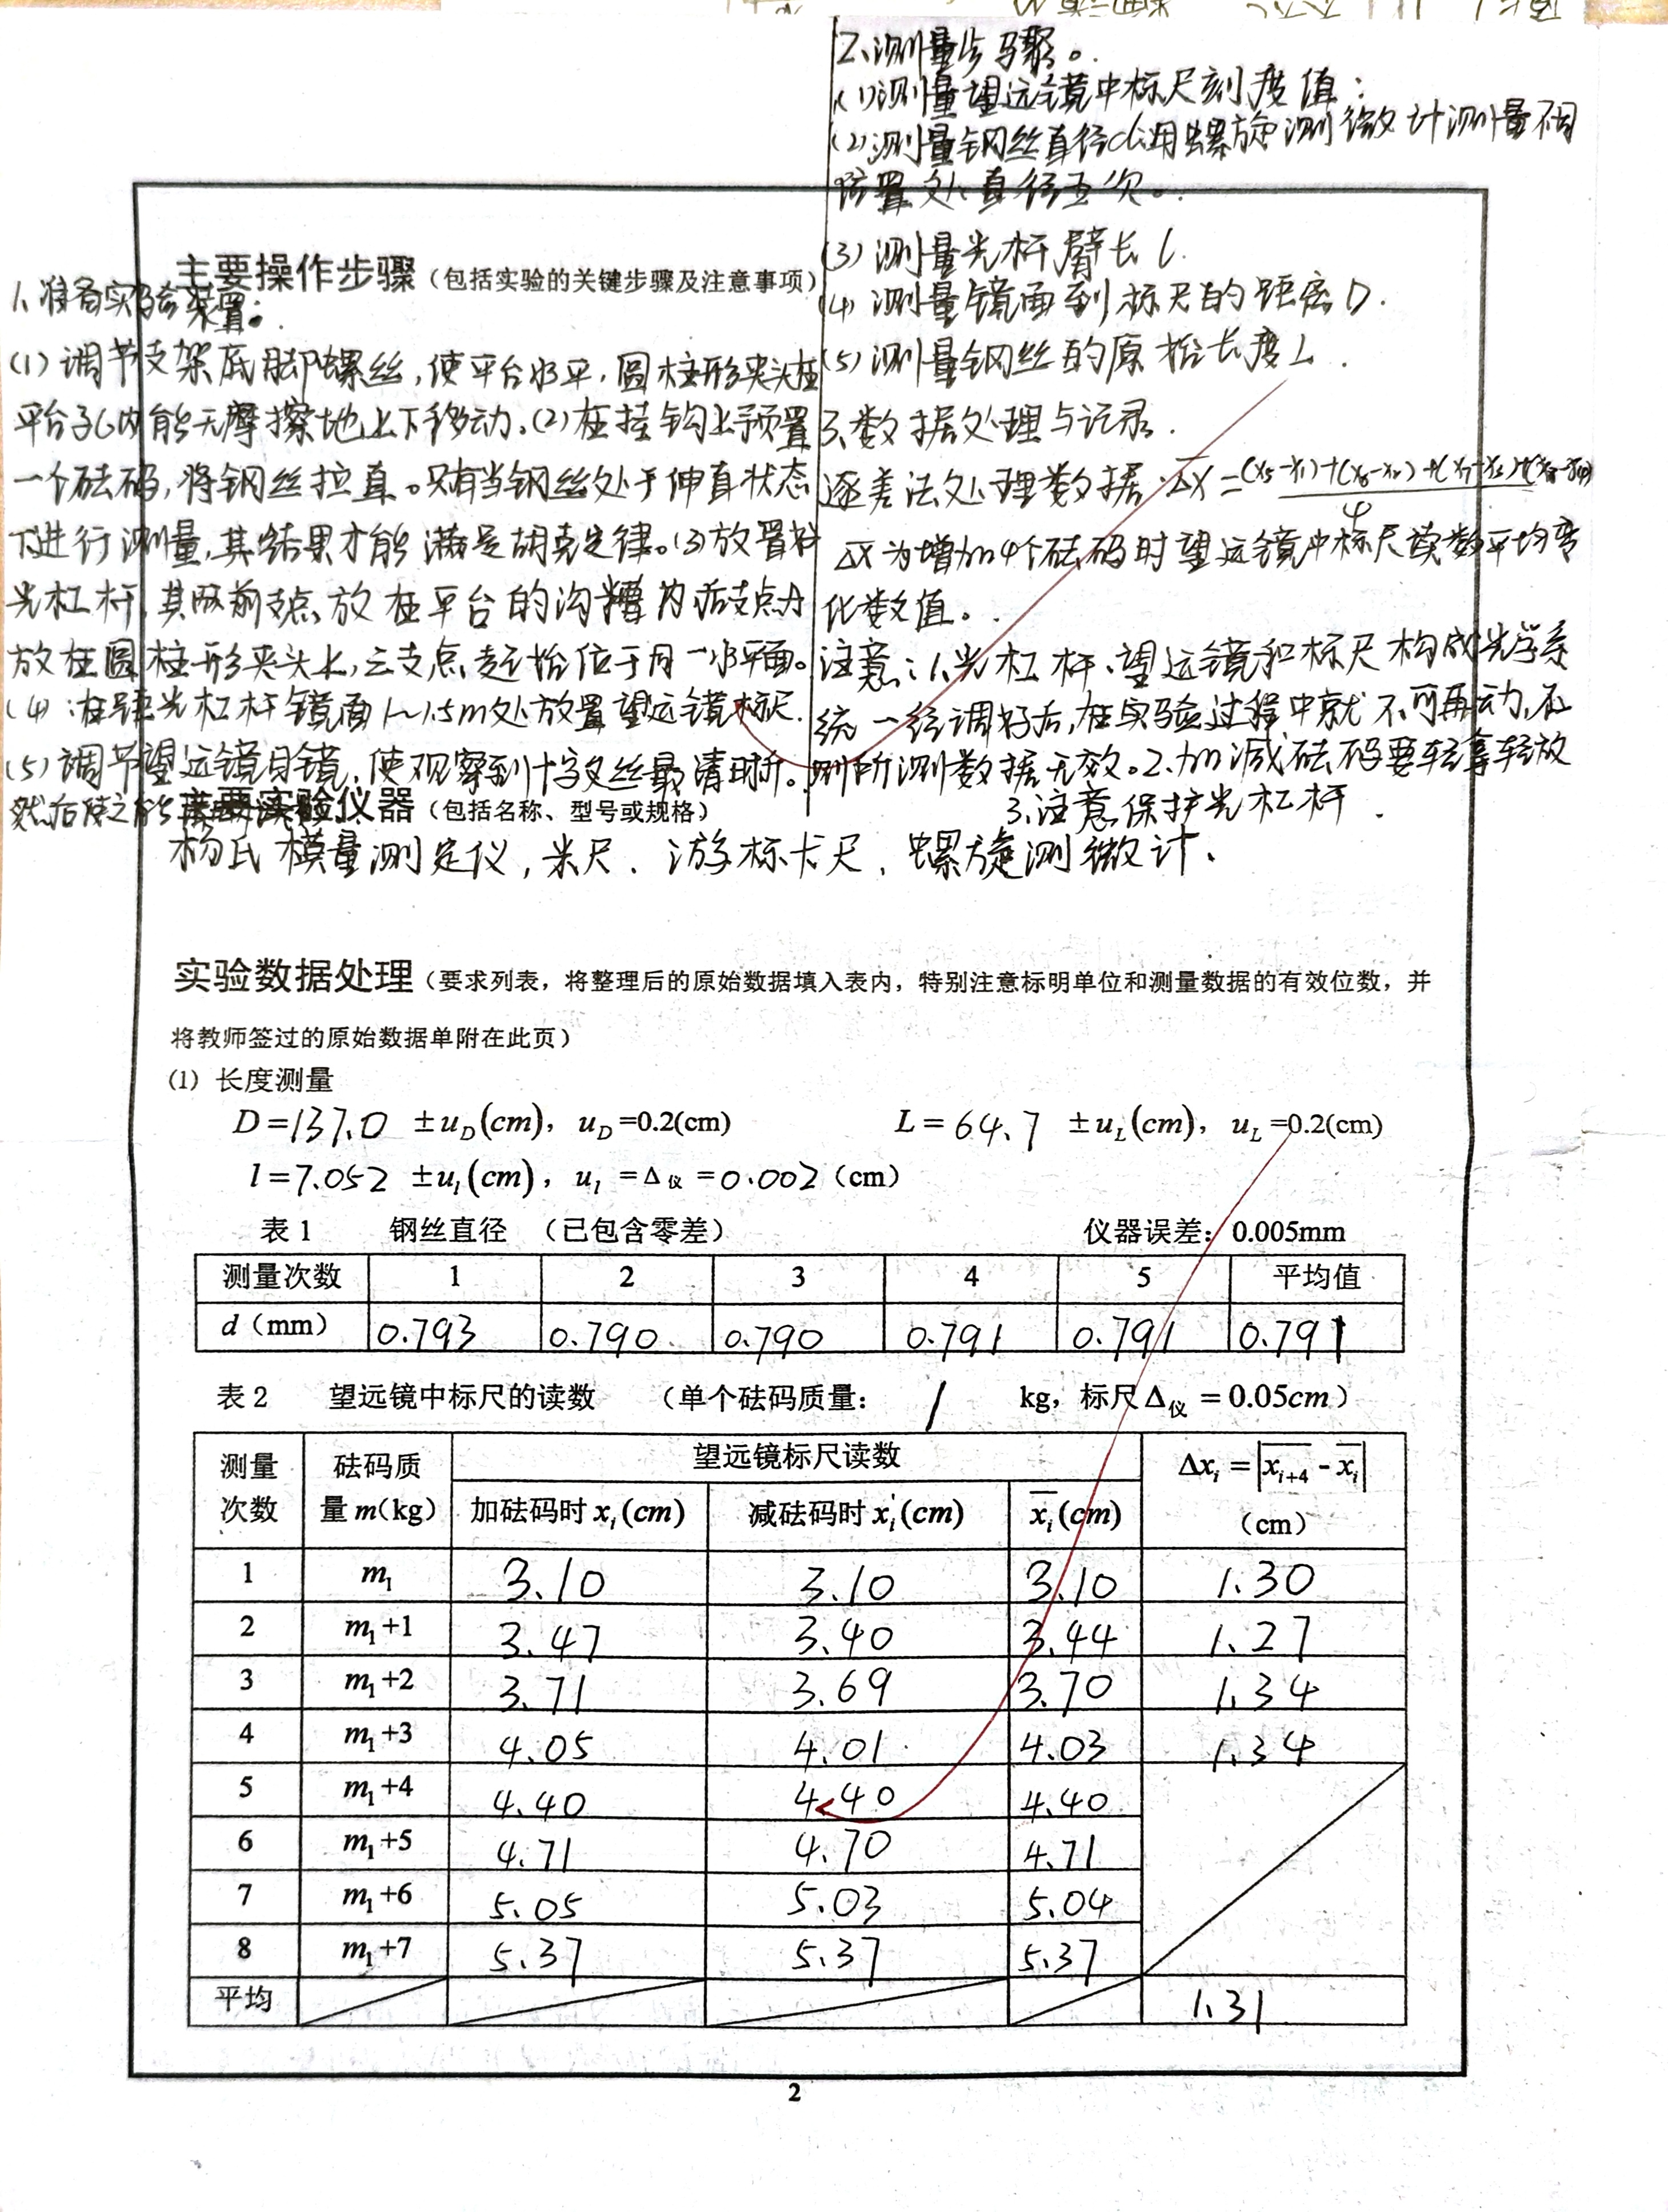 主要操作步骤（包括实验的关键步骤及注意事项）
1、准备实验装置：
(1) 调节支架底脚螺丝，使平台水平，圆柱形夹头在
平台孔内能无摩擦地上下移动。(2) 在挂钩上预置
一个砝码，将钢丝拉直。只有当钢丝处于伸直状态
下进行测量，其结果才能满足胡克定律。(3) 放置
光杠杆，其两前支点放在平台的沟槽内后支点
放在圆柱形夹头上，三支点起始位于同一水平面。
(4) 在距光杠杆镜面1~1.5m处放置望远镜标尺.
(5) 调节望远镜目镜，使观察到十字叉丝最清晰。
然后使之能
2、测量步骤。
(1) 测量望远镜中标尺刻度值；
(2) 测量钢丝直径d,用螺旋测微计测量不同
位置处直径五次。
(3) 测量光杆臂长 l.
(4) 测量镜面到标尺的距离D.
(5) 测量钢丝的原始长度L.
3、数据处理与记录.
逐差法处理数据 Δx̄ = (x₅-x₁)+(x₆-x₂)+(x₇-x₃)+(x₈-x₄) / 4
Δx̄ 为增加4个砝码时望远镜中标尺读数平均变
化数值。
注意：1、光杠杆、望远镜和标尺构成光学系
统一经调好后，在实验过程中就不可再动，否
则所测数据无效。2、加减砝码要轻拿轻放
3、注意保护光杠杆.
主要实验仪器（包括名称、型号或规格）
杨氏模量测定仪，米尺、游标卡尺、螺旋测微计、
实验数据处理（要求列表，将整理后的原始数据填入表内，特别注意标明单位和测量数据的有效位数，并
将教师签过的原始数据单附在此页）
(1) 长度测量
D=137.0 ±u_D(cm)，u_D=0.2(cm) L=64.7 ±u_L(cm)，u_L=0.2(cm)
l=7.052 ±u_l(cm)，u_l=Δ仪=0.002（cm）
表1 钢丝直径 （已包含零差） 仪器误差：0.005mm
测量次数 1 2 3 4 5 平均值
d（mm） 0.793 0.790 0.790 0.791 0.791 0.791
表2 望远镜中标尺的读数 （单个砝码质量： 1 kg，标尺Δ仪=0.05cm）
测量次数 砝码质量m(kg) 望远镜标尺读数 Δxᵢ=|x̄ᵢ₊₄-x̄ᵢ|（cm）
加砝码时xᵢ(cm) 减砝码时xᵢ'(cm) x̄ᵢ(cm)
1 m₁ 3.10 3.10 3.10 1.30
2 m₁+1 3.47 3.40 3.44 1.27
3 m₁+2 3.71 3.69 3.70 1.34
4 m₁+3 4.05 4.01 4.03 1.34
5 m₁+4 4.40 4.40 4.40
6 m₁+5 4.71 4.70 4.71
7 m₁+6 5.05 5.03 5.04
8 m₁+7 5.37 5.37 5.37
平均 1.31
2